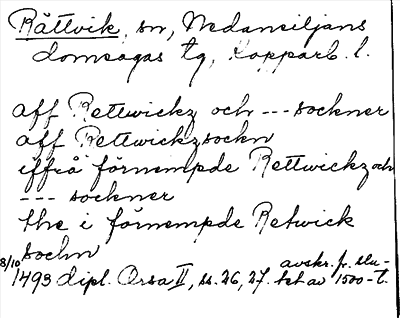 Rättvik, sn, Nedansiljans
domsagas tg, Kopparb. l.
aff Rettwickz och --- sockner
aff Rettwickzsockn
iffrå förnempde Rettwickz och
--- sockner
the i förnempde Retwick
sochn
8/10 1493 dipl. Orsa II, ss. 26, 27. avskr. fr. slu-
tet av 1500-t.